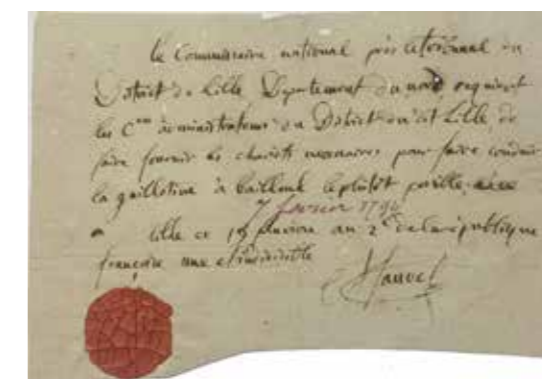 le Commissaire national près le tribunal du
District de Lille, Département du nord, requiert
les C.ens administrateurs du District dudit Lille, de
faire fournir les chariots necessaires pour faire conduire
la guillotine à bailleul le plutôt possible
7 février 1794
lille ce 19 pluviose an 2.e de la république
française une et indivisible